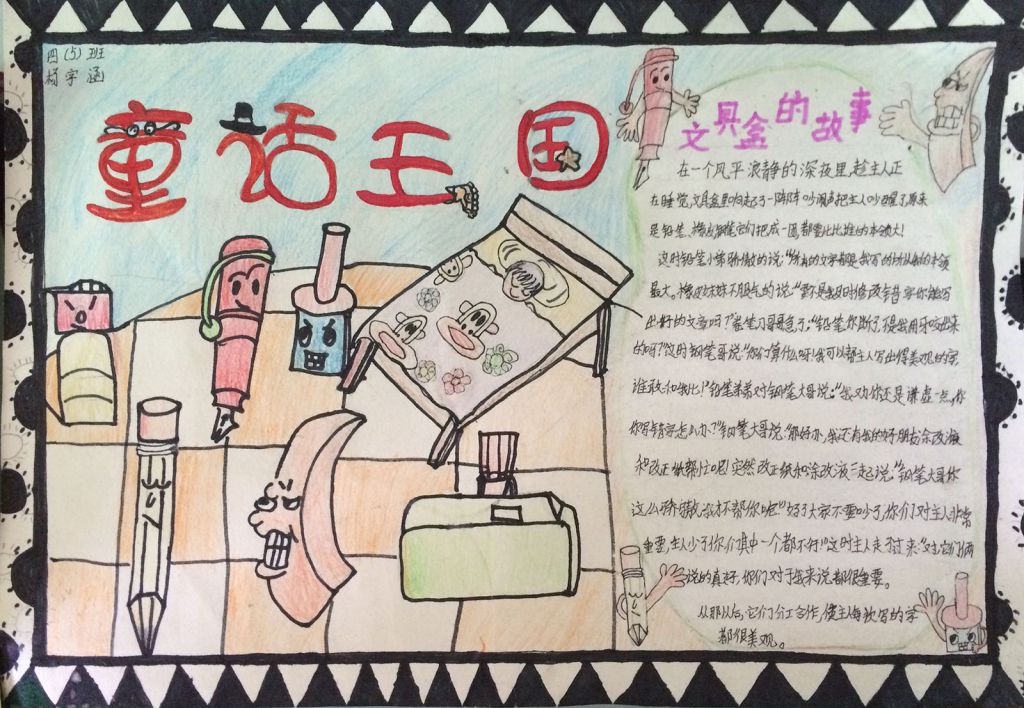 四(5)班
杨宇涵
童话王国
文具盒的故事
在一个风平浪静的深夜里,趁主人正
在睡觉,文具盒里响起了一阵阵吵闹声把主人吵醒了,原来
是铅笔、橡皮、钢笔它们把成一团,都要比比谁的本领大!
这时铅笔小弟骄傲的说:"所有的文字都是我写的,所以我的本领
最大。橡皮妹妹不服气的说:"要不是我及时修改错字你能写
出好的文章吗?"卷笔刀哥哥急了:"铅笔你断了,不是我用牙咬出来
的吗?"这时钢笔哥说:"你们算什么呀!我可以帮主人写出得美观的字,
谁敢和我比!"铅笔弟弟对钢笔大哥说:"我劝你还是谦虚一点,你
你写错字怎么办?"钢笔大哥说:"那好办,我还有我的好朋友涂改液
和改正纸帮忙呢!突然改正纸和涂改液一起说:"钢笔大哥你
这么骄傲,我才不帮你呢""好了大家不要吵了,你们对主人非常
重要,主人少了你们其中一个都不行!"这时主人走了过来:"对,它们俩
说的真好,你们对于我来说都很重要。
从那以后,它们分工合作,使主人每次写的字
都很美观。